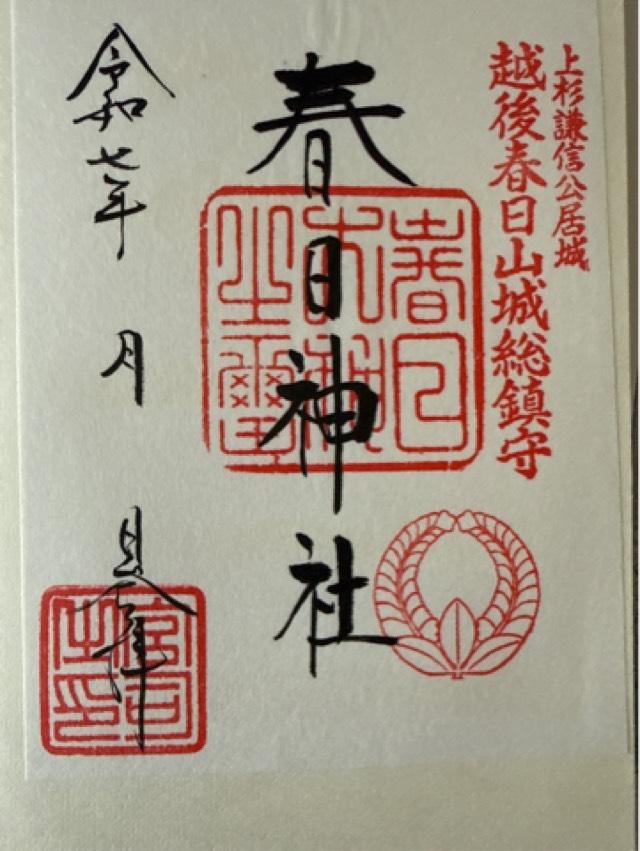 上杉謙信公居城
越後春日山城総鎮守
春日神社
春日大神之璽
令和七年　月　日奉拝
宮司之印